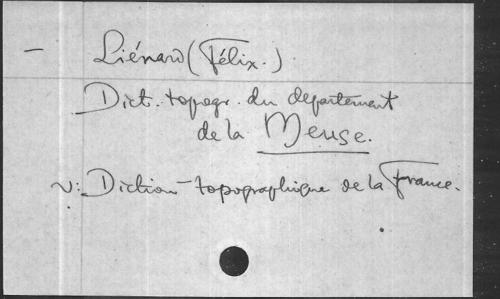 — Liénard (Félix.)
Dict. topogr. du département
de la Meuse.
v: Diction- topographique de la France.